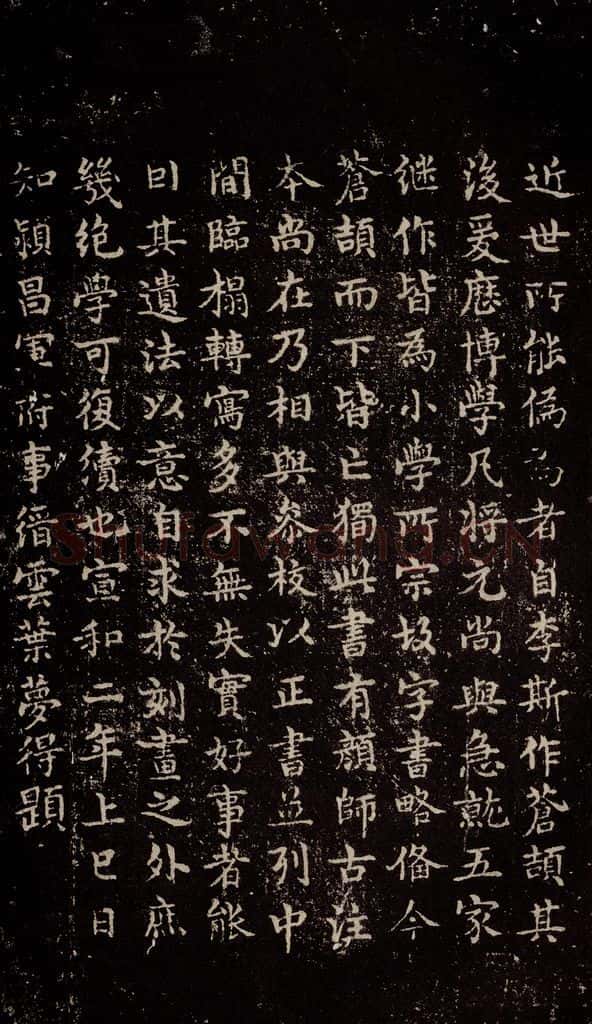 近世所能偽為者自李斯作蒼頡其
後爰歷博學凡将元尚與急就五家
継作皆為小學所宗故字書略俻今
蒼頡而下皆亡獨此書有顏師古注
本尚在乃相與叅校以正書並列中
間臨榻轉寫多不無失實好事者能
因其遺法以意自求於刻畫之外庶
幾绝學可復續也宣和二年上巳日
知潁昌軍府事縉雲葉夢得題
Shufawang.CN